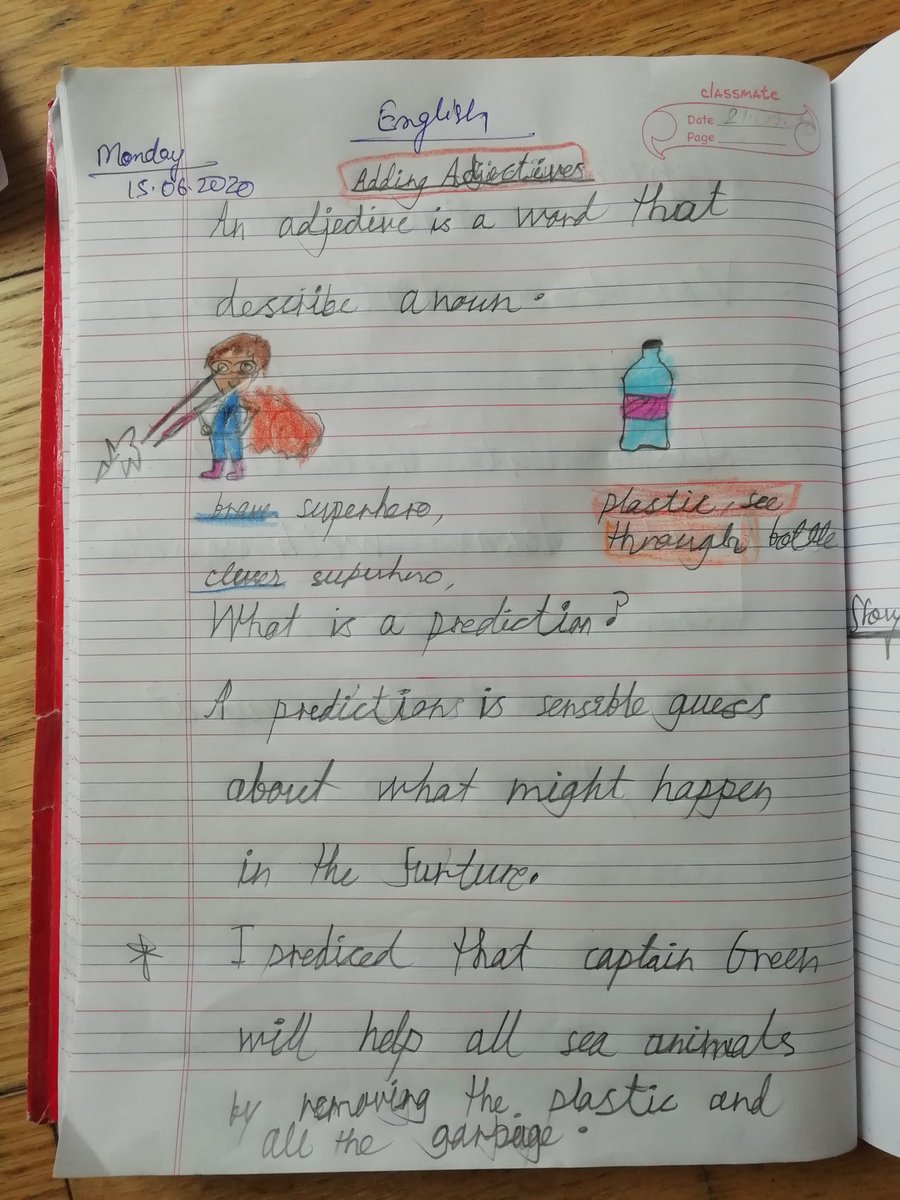 classmate
Date
Page
English
Monday
15.06.2020
Adding Adjectives
An adjedive is a word that
describe a noun.
brave superhero,
plastic, see
through bottle
clever superhero,
What is a prediction?
A predictions is sensible guess
about what might happen
in the furture.
* I prediced that captain Green
will help all sea animals
by removing the plastic and
all the garpage.
Story